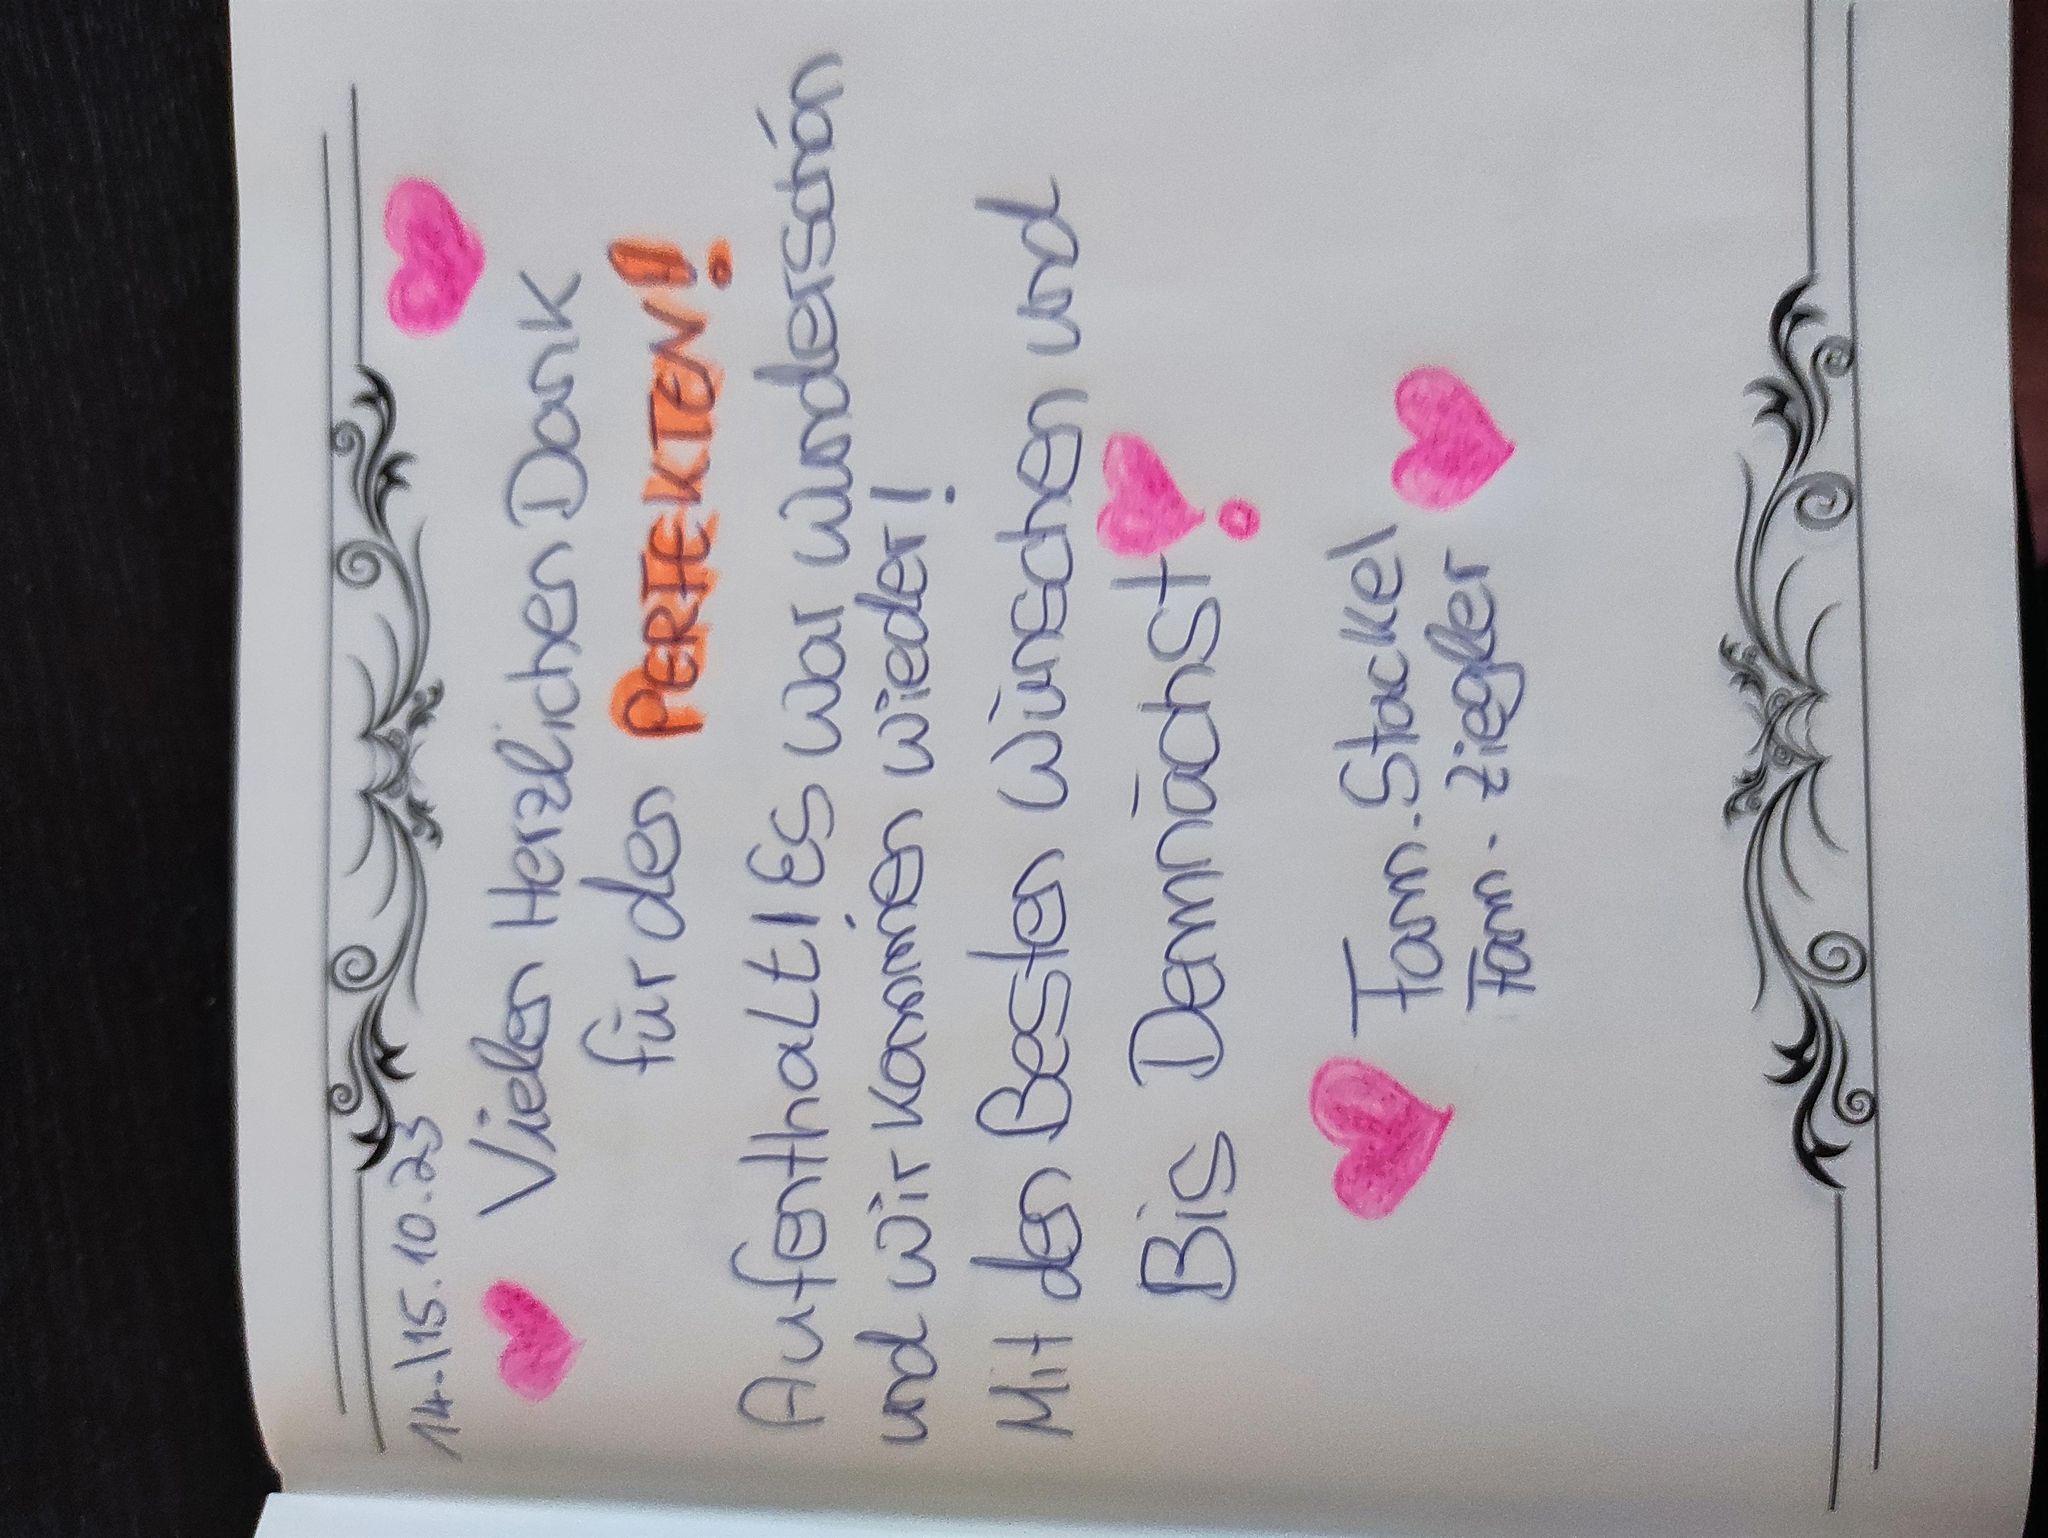 14.-15.10.23
Vielen Herzlichen Dank
für den PERFEKTEN!
Aufenthalt! Es war wunderschön
und wir kommen wieder!
Mit den Besten Wünschen und
Bis Demnächst!
Fam. Stackel
Fam. Ziegler